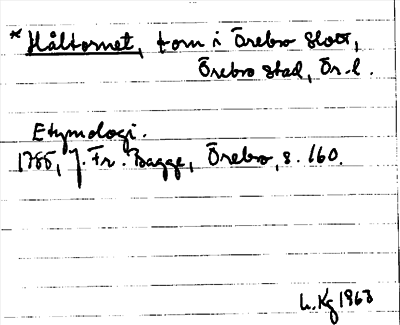 * Håltornet, torn i Örebro slott,
Örebro stad, Ör. l.
Etymologi.
1785, J. Fr. Bagge, Örebro, s. 160.
L. Kg 1963